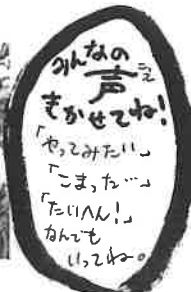 みんなの
声
こえ
きかせてね！
「やってみたい」
「こまった…」
「たいへん！」
なんでも
いってね。